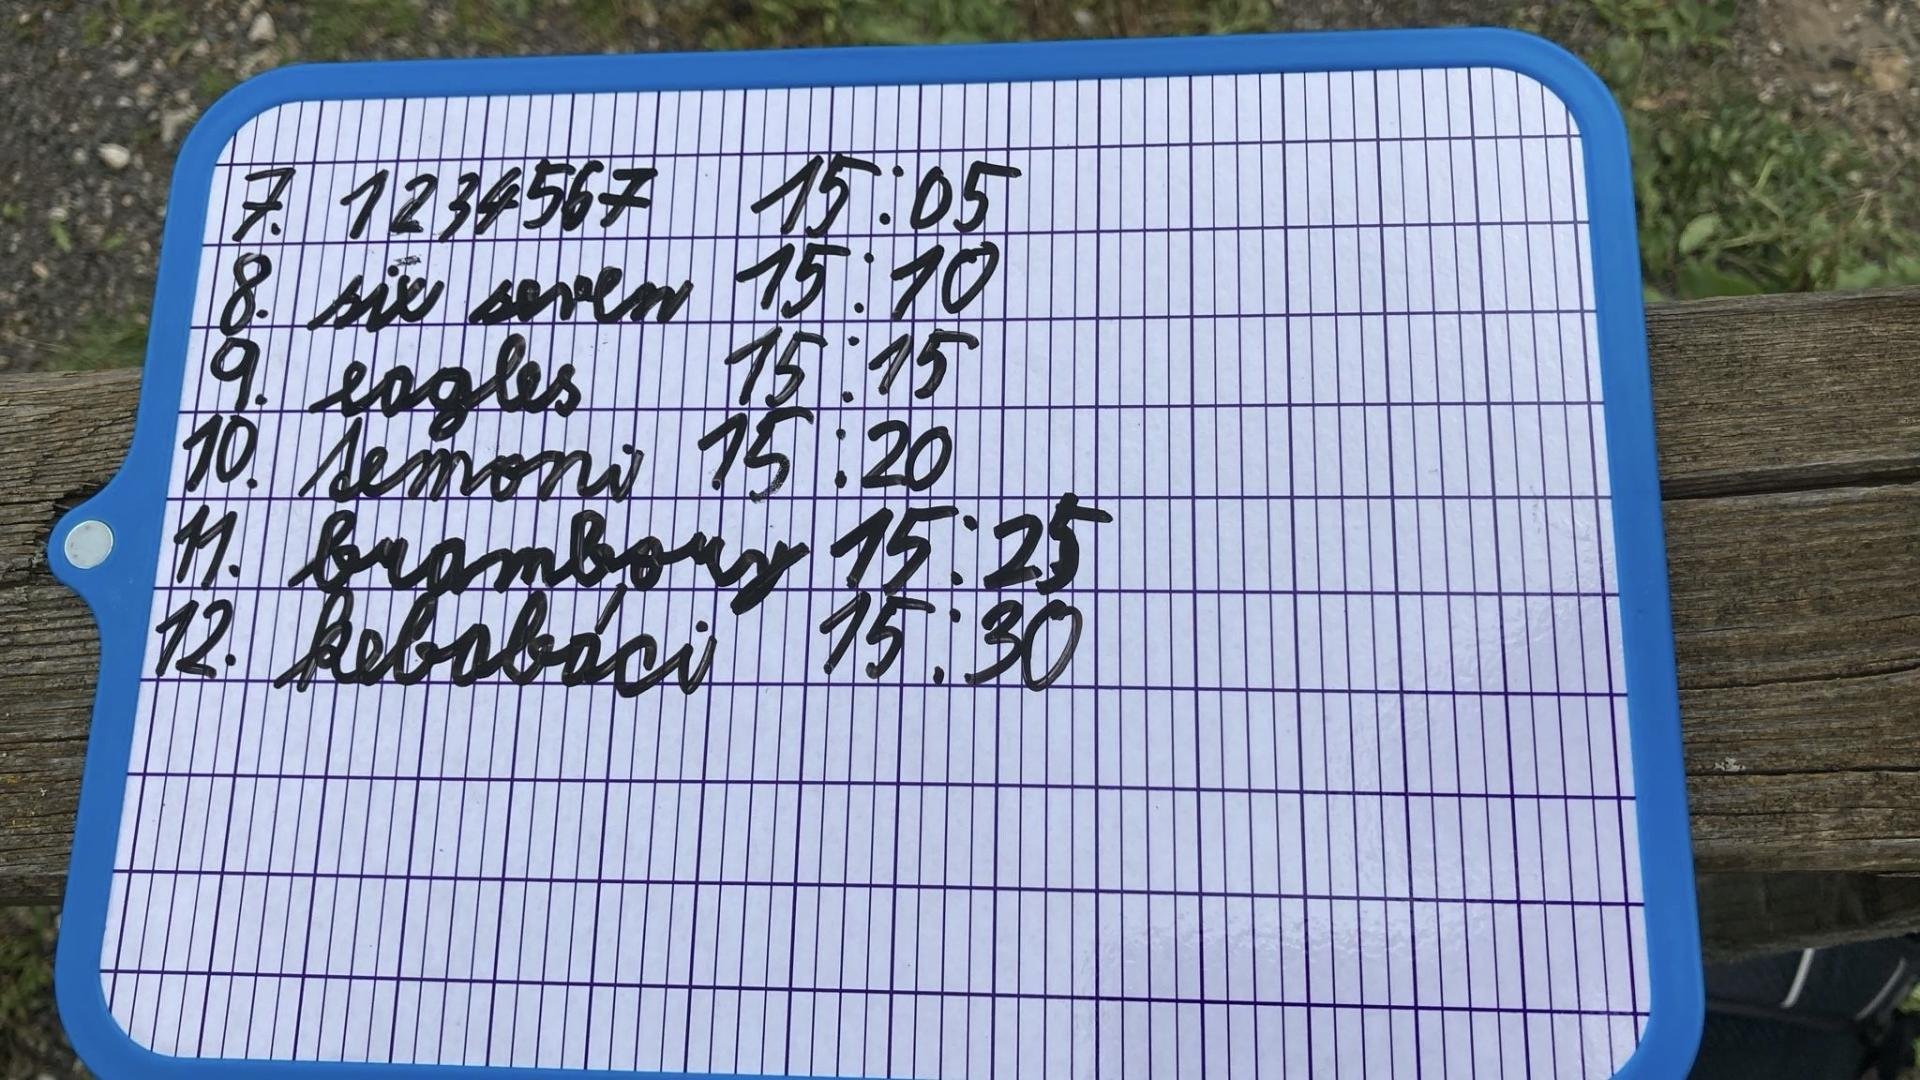 7. 1234567 15:05
8. six seven 15:10
9. eagles 15:15
10. 15:20
11. brambory 15:25
12. kebabáci 15:30